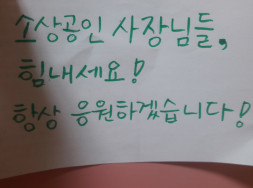 소상공인 사장님들,
힘내세요!
항상 응원하겠습니다!